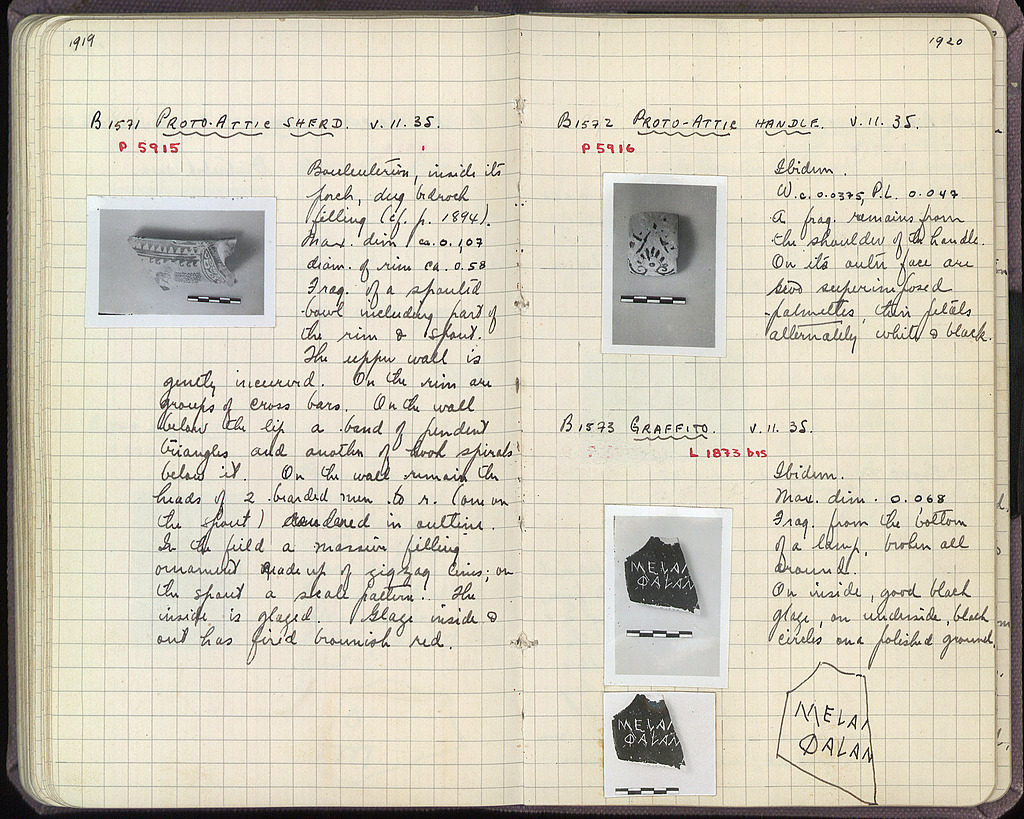 1919
B 1571 PROTO-ATTIC SHERD. V. 11. 35.
P 5915
Bouleuterion, inside its
porch, dug bedrock
filling (cf. p. 1894).
Max. dim ca. 0,107
diam. of rim ca. 0.58
Frag. of a spouted
bowl including part of
the rim & spout.
The upper wall is
gently incurved. On the rim are
groups of cross bars. On the wall
below the lip a band of pendent
triangles and another of hook spirals
below it. On the wall remain the
heads of 2 bearded men to r. (one on
the spout) rendered in outline.
In the field a massive filling
ornament made up of zigzag lines; on
the spout a scale pattern. The
inside is glazed. Glaze inside &
out has fired brownish red.
1920
B 1572 PROTO-ATTIC HANDLE. V. 11. 35.
P 5916
Ibidem.
W. c. 0.0375, P.L. 0.047
A frag. remains from
the shoulder of the handle.
On its outer face are
two superimposed
palmettes, their petals
alternately white & black.
B 1573 GRAFFITO. V. 11. 35.
L 1873 bis
Ibidem.
Max. dim. 0.068
Frag. from the bottom
of a lamp, broken all
around.
On inside, good black
glaze, on underside, black
circles on a polished ground.
MELAN
ΦALAN
MELAN
ΦALAN
MELAN
ΦALAN